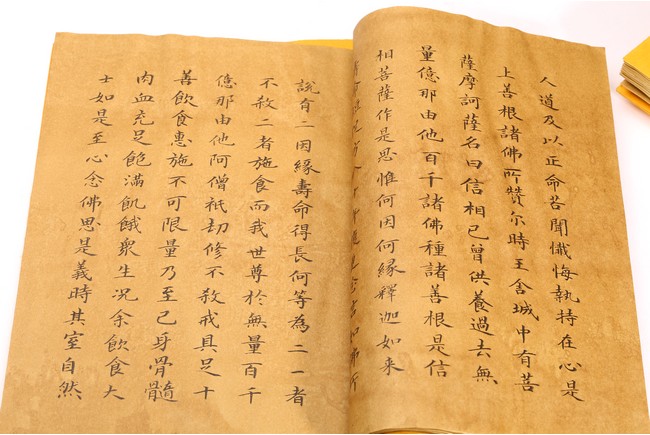 人道及以正命若聞懺悔執持在心是
上善根諸佛所贊尔時王舍城中有菩
薩摩訶薩名曰信相已曾供養過去無
量億那由他百千諸佛種諸善根是信
相菩薩作是思惟何因何緣釋迦如来
念言如佛所
說有二因緣壽命得長何等為二一者
不殺二者施食而我世尊於無量百千
億那由他阿僧祇劫修不殺戒具足十
善飲食惠施不可限量乃至已身骨髓
肉血充足飽滿飢餓衆生況余飲食大
士如是至心念佛思是義時其室自然